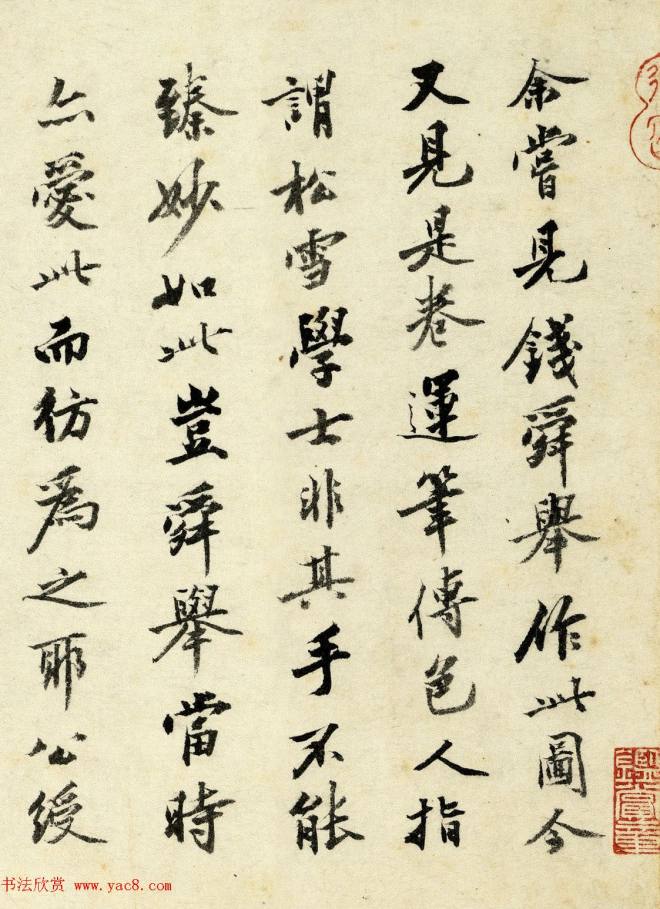 余嘗見錢舜舉作此圖今
又見是卷運筆傅色人指
謂松雪學士非其手不能
臻妙如此豈舜舉當時
亦愛此而仿為之耶公綬
书法欣赏 www.yac8.com